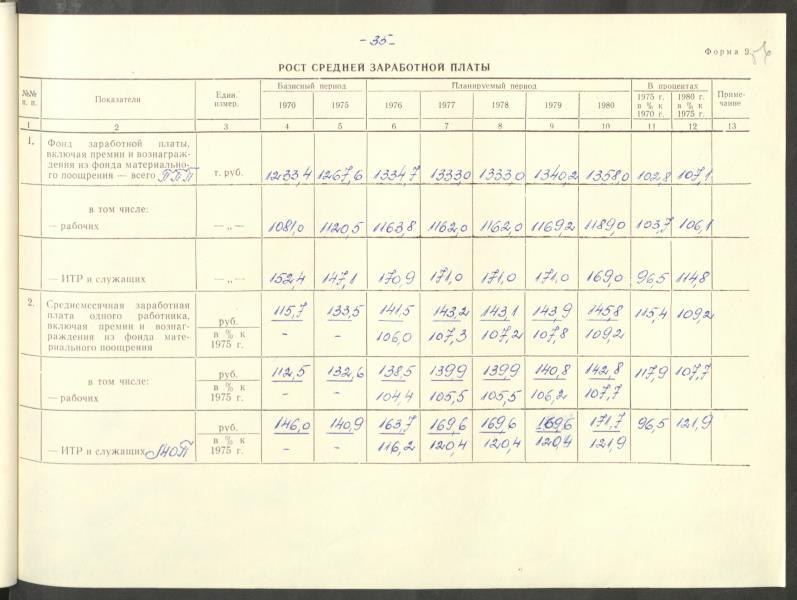 - 35 -
Форма 9.
РОСТ СРЕДНЕЙ ЗАРАБОТНОЙ ПЛАТЫ
№№ п. п. Показатели Един. измер. Базисный период Планируемый период В процентах Примечание
1970 1975 1976 1977 1978 1979 1980 1975 г. в % к 1970 г. 1980 г. в % к 1975 г.
1 2 3 4 5 6 7 8 9 10 11 12 13
1. Фонд заработной платы,
включая премии и вознаграж-
дения из фонда материально-
го поощрения — всего ППП т. руб. 1233,4 1267,6 1334,7 1333,0 1333,0 1340,2 1358,0 102,8 107,1
в том числе:
— рабочих —„— 1081,0 1120,5 1163,8 1162,0 1162,0 1169,2 1189,0 103,7 106,1
— ИТР и служащих —„— 152,4 147,1 170,9 171,0 171,0 171,0 169,0 96,5 114,8
2. Среднемесячная заработная
плата одного работника,
включая премии и вознаг-
раждения из фонда мате-
риального поощрения
руб. 115,7 133,5 141,5 143,2 143,1 143,9 145,8 115,4 109,2
в % к 1975 г. - - 106,0 107,3 107,2 107,8 109,2
в том числе:
— рабочих
руб. 112,5 132,6 138,5 139,9 139,9 140,8 142,8 117,9 107,7
в % к 1975 г. - - 104,4 105,5 105,5 106,2 107,7
— ИТР и служащих
руб. 146,0 140,9 163,7 169,6 169,6 169,6 171,7 96,5 121,9
в % к 1975 г. - - 116,2 120,4 120,4 120,4 121,9